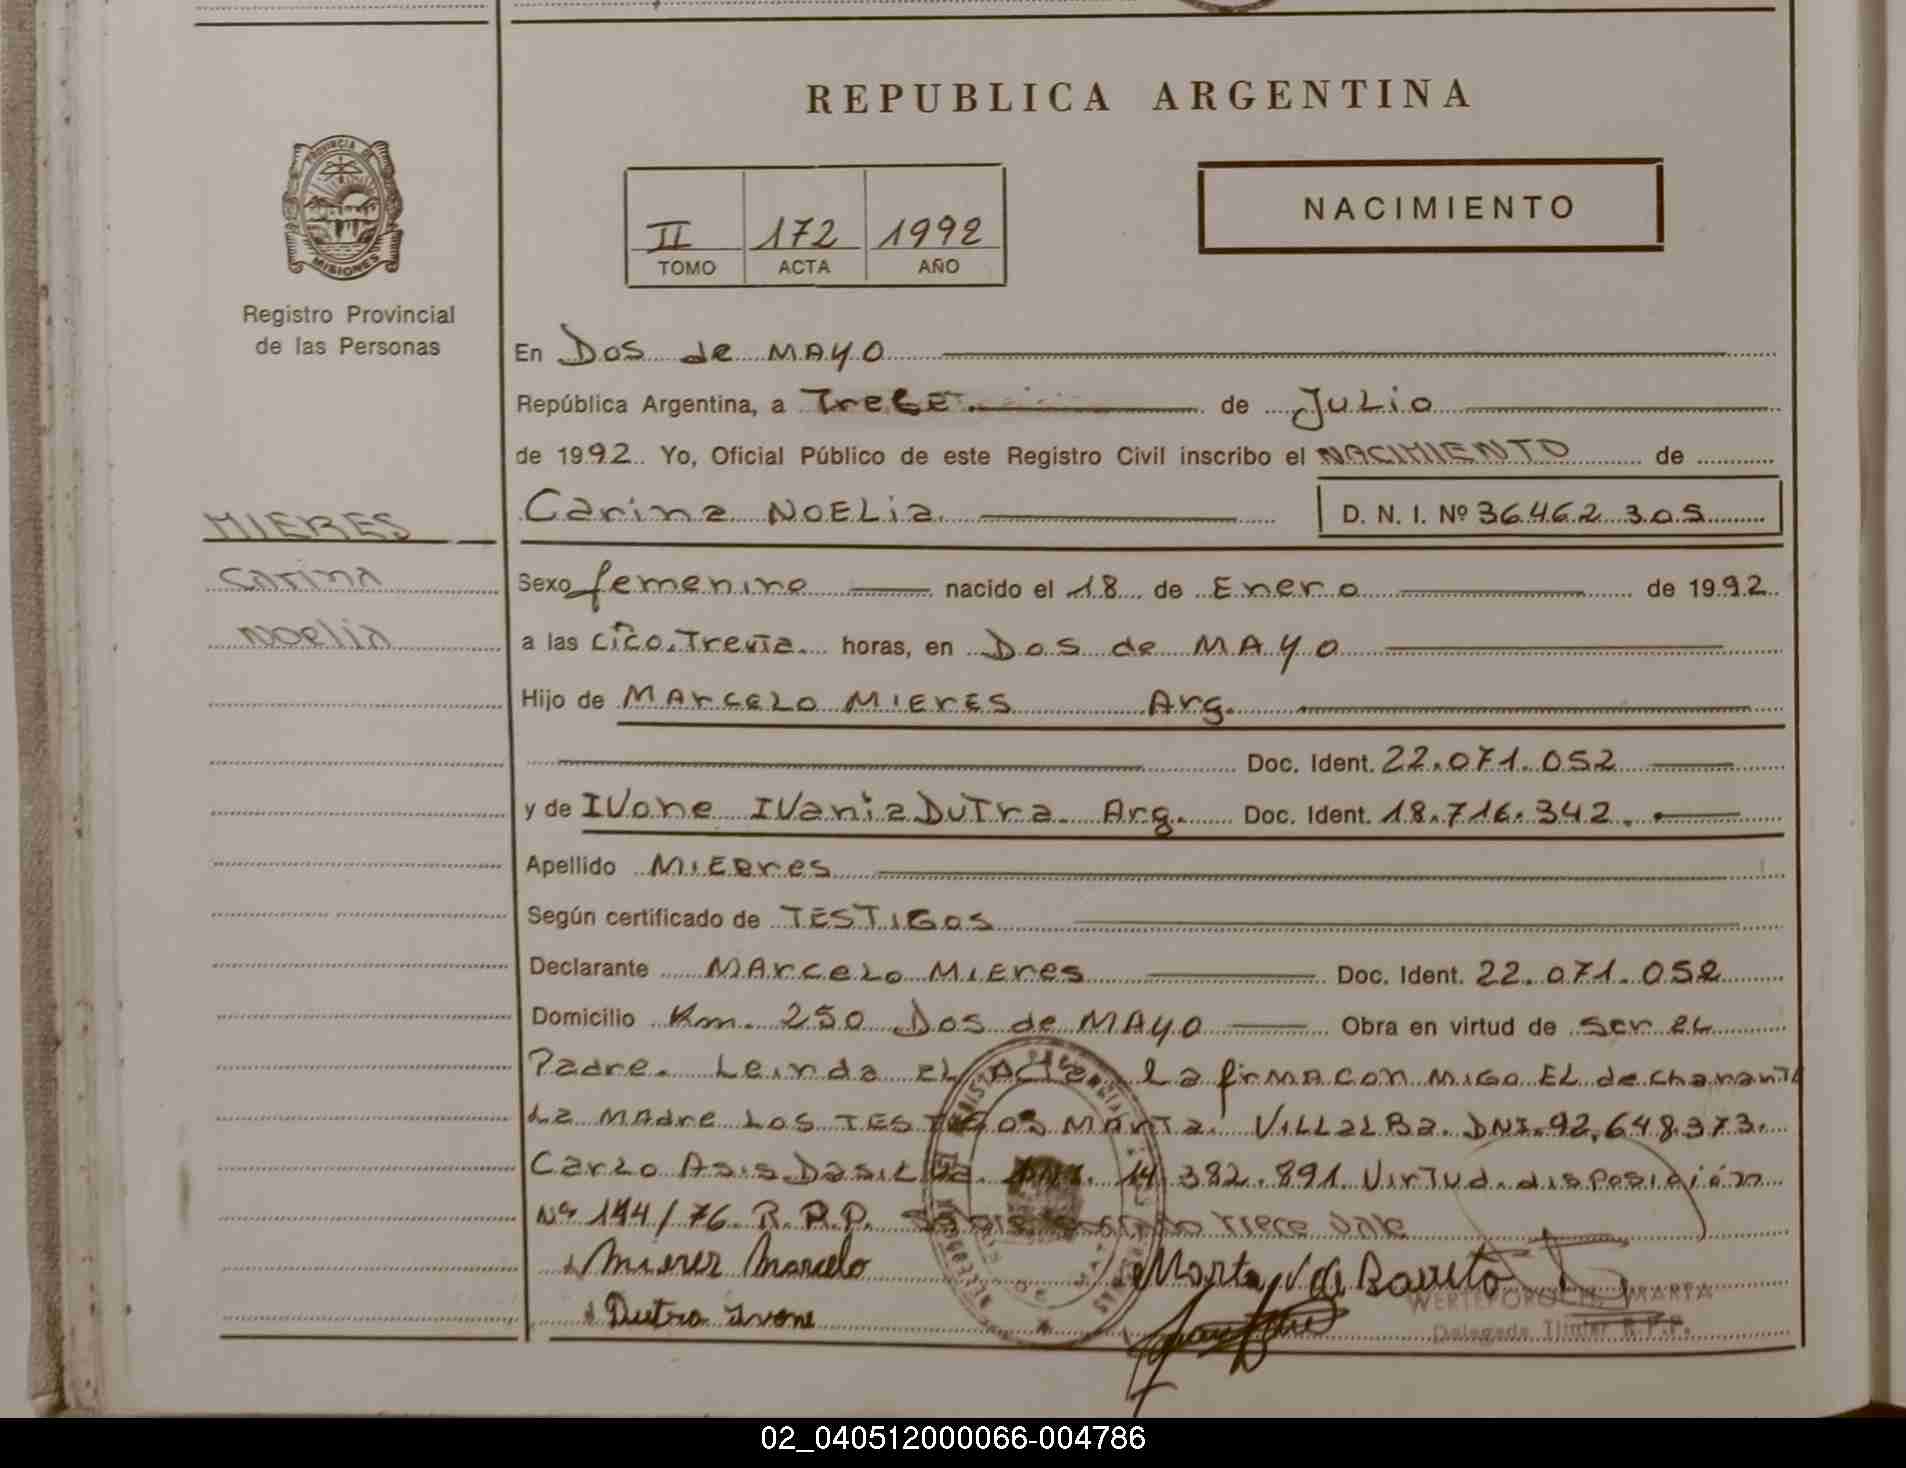 REPUBLICA ARGENTINA
PROVINCIA DE
MISIONES
Registro Provincial
de las Personas
II 172 1992
TOMO ACTA AÑO
NACIMIENTO
En Dos de MAYO
República Argentina, a Trece. de Julio
de 1992. Yo, Oficial Público de este Registro Civil inscribo el NACIMIENTO de
MIERES
Carina NOELia D. N. I. Nº 36.462.305
Carina
Sexo femenino nacido el 18 de Enero de 1992
Noelia
a las Cĩco. Treĩta. horas, en Dos de MAYO
Hijo de MArceLo MIERES Arg.
Doc. Ident. 22.071.052
y de IVone IVania DuTra. Arg. Doc. Ident. 18.716.342.
Apellido MIEres
Según certificado de TESTIGOS
Declarante MArceLo MIEres Doc. Ident. 22.071.052
Domicilio Km. 250 Dos de MAYO Obra en virtud de ser eL
Padre. Leinda EL Acta La firMA con Migo EL
La MAdre Los TESTIGOS MArTa VILLaLBa. DNI. 92.648.373.
CarLo Asis DasiLva. DNI. 14.382.891. VirTud. disposición
Nº 144/76. R.P.P. Trece Vale
Mieres Marcelo Marta V de Barreto
Dutra Ivone
MARTA
Delegada Titular R.P.P.
02_040512000066-004786